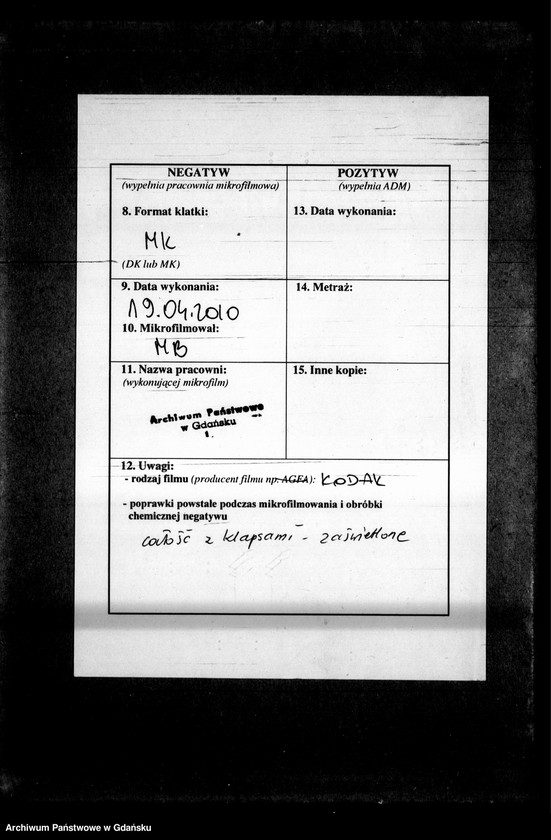 NEGATYW
(wypełnia pracownia mikrofilmowa)
POZYTYW
(wypełnia ADM)
8. Format klatki:
MK
(DK lub MK)
13. Data wykonania:
9. Data wykonania:
19.04.2010
10. Mikrofilmował:
MB
14. Metraż:
11. Nazwa pracowni:
(wykonującej mikrofilm)
Archiwum Państwowe
w Gdańsku
1.
15. Inne kopie:
12. Uwagi:
- rodzaj filmu (producent filmu np. AGFA): KODAK
- poprawki powstałe podczas mikrofilmowania i obróbki
chemicznej negatywu
całość z klapsami - zaświetlone
Archiwum Państwowe w Gdańsku